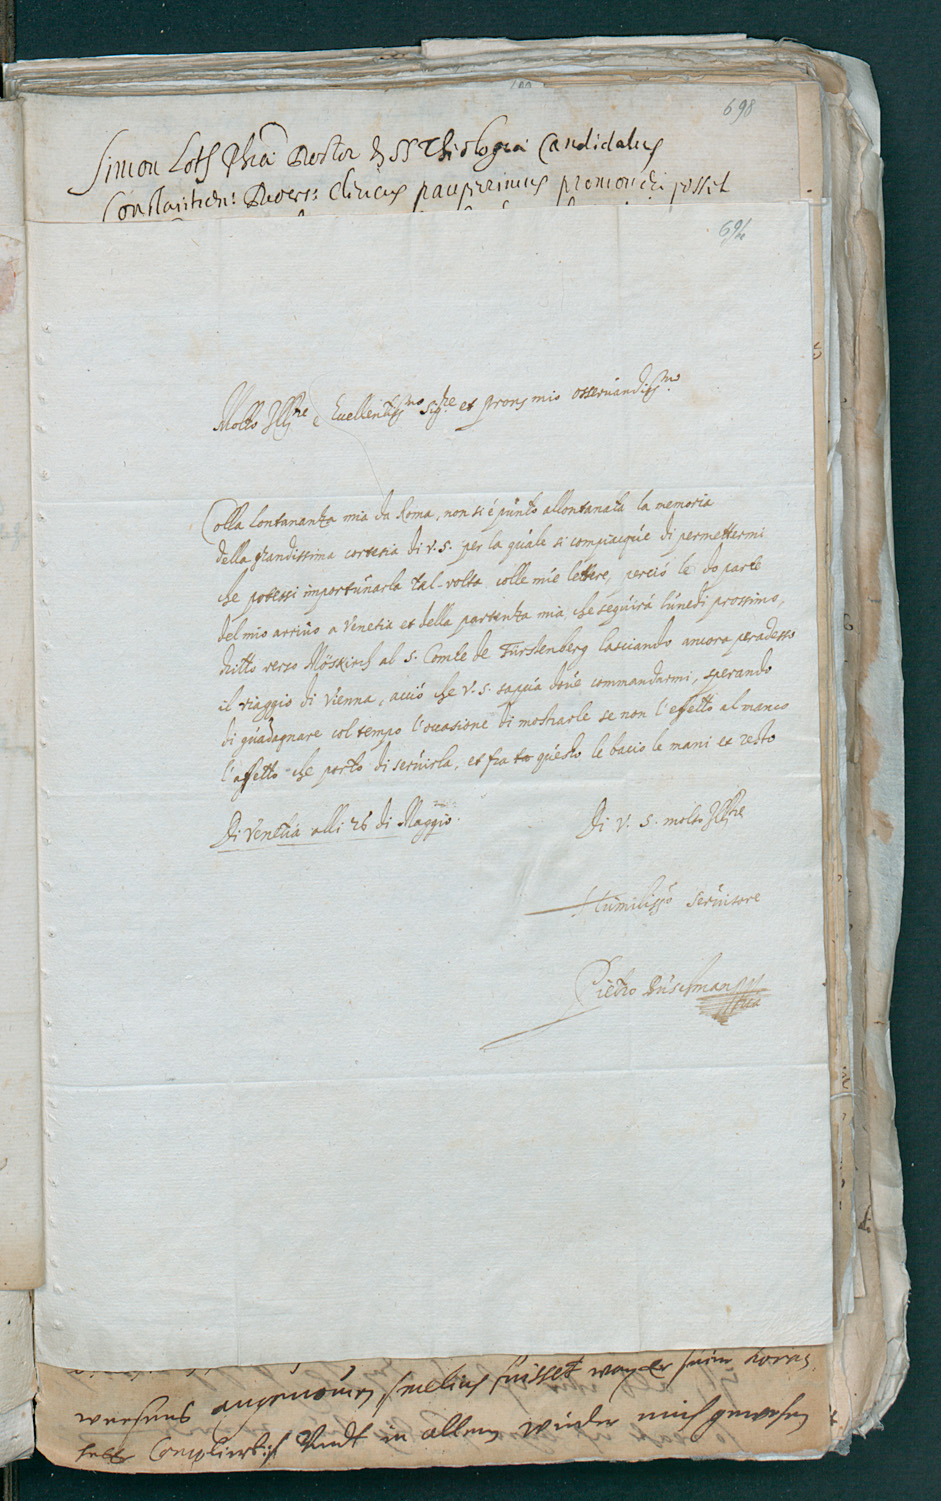 698
Simon Loth Phiae Doctor & SS Theologiae Candidatus
Constantien: Dioeces: Clericus pauperrimus promoveri posset
694
Molto Ill.re e Eccellentiss.mo Sig.re et Prone mio osservandiss.mo
Colla lontananza mia da Roma, non si é púnto allontanata la memoria
della grandissima cortesia di V.S. per la qúale si compiacqúe di permettermi
che potessi importúnarla tal-volta colle mie lettere, perció le do parte
del mio arrivo a Venetia et della partenza mia, che segúirá lúnedi prossimo,
dritto verso Möskirch al S. Comte de Fürstenberg lasciando ancora per adesso
il viaggio di Vienna, acció che V.S. sappia dove commandarmi, sperando
di gúadagnare col tempo l'occasione di mostrarle se non l'effetto al manco
l'affetto che porto di servirla, et fra to qúesto le bacio le mani et resto
Di Venetia alli 26 di Maggio.
Di V. S. molto Ill.re
Humiliss.o servitore
Pietro Búschman
angenomen melius fuisset
in allem wider mich gewesen